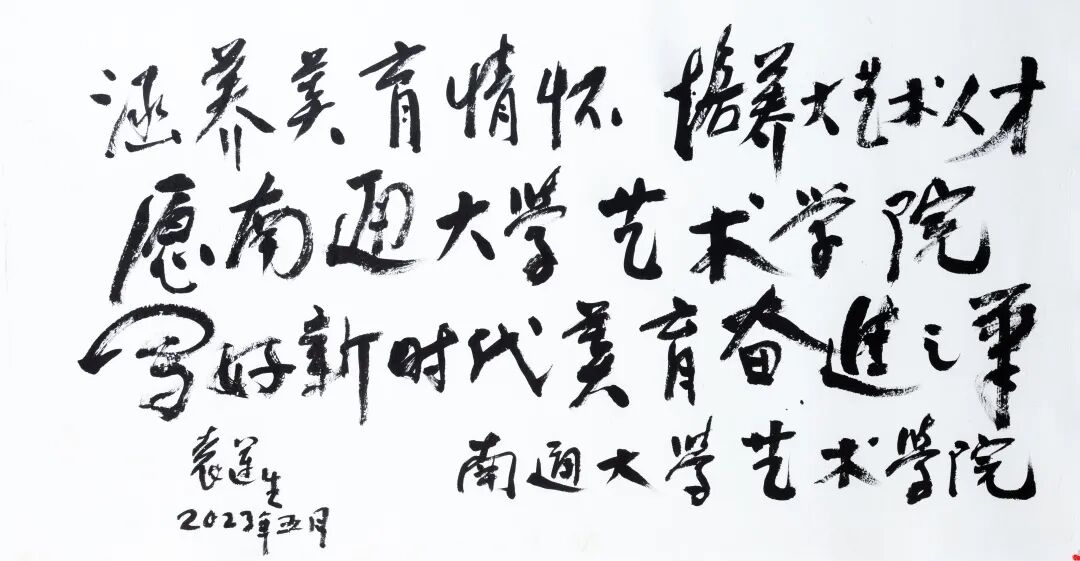 涵养美育情怀 培养大艺术人才
愿南通大学艺术学院
写好新时代美育奋進之筆
南通大学艺术学院
袁運生
2023年五月